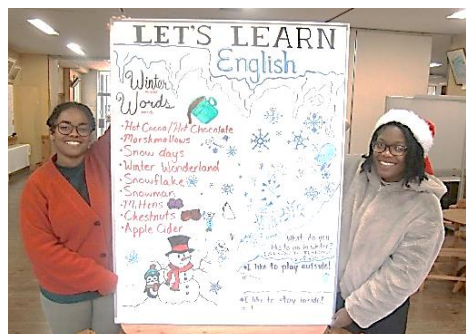 LET'S LEARN
English
Winter
Words
• Hot Cocoa/Hot Chocolate
• Marshmallows
Snow days
• Winter Wonderland
• Snowflake
• Snowman
• Mittens
• Chestnuts
• Apple Cider
What do you
like to do in winter?
• I like to play outside!
• I like to stay inside!